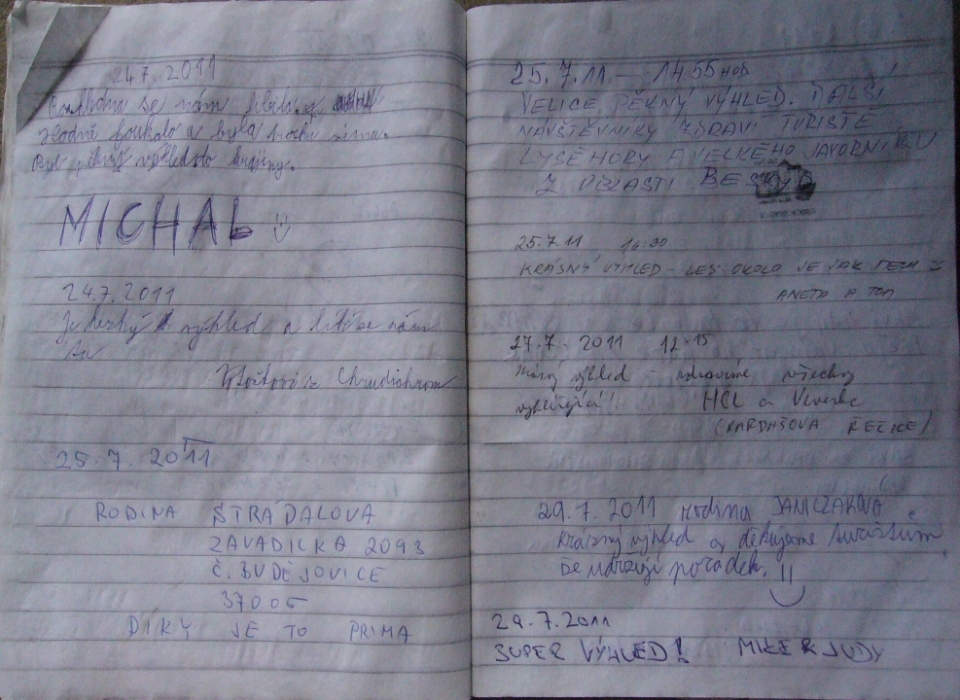 24.7. 2011
se nám líbila
Hodně foukalo a byla trochu zima.
Byl výhled do krajiny.
MICHAL
24.7. 2011
Je hezký výhled a líbí se nám
tu
25.7. 2011
RODINA STRÁDALOVA
ZAVADILKA 2093
Č. BUDĚJOVICE
37005
DIKY JE TO PRIMA
25.7.11 - 1455 HOD
VELICE PĚKNÝ VÝHLED. DALŠÍ
NÁVŠTĚVNÍKY ZDRAVÍ TURISTÉ
LYSÉ HORY A VELKÉHO JAVORNÍKU
Z OBLASTI BESKYD
25.7.11 16:30
KRÁSNÝ VÝHLED - LES OKOLO JE JAK MECH
A TOM
27.7. 2011 12.15
výhled zdravíme všechny
HCL a Veverka
(KARDAŠOVA ŘEČICE)
29.7.2011 rodina JANICZAKOVÁ
Krásný výhled a děkujeme turistům,
že udržují pořádek.
29.7.2011
SUPER VÝHLED! MIKE & JUDY